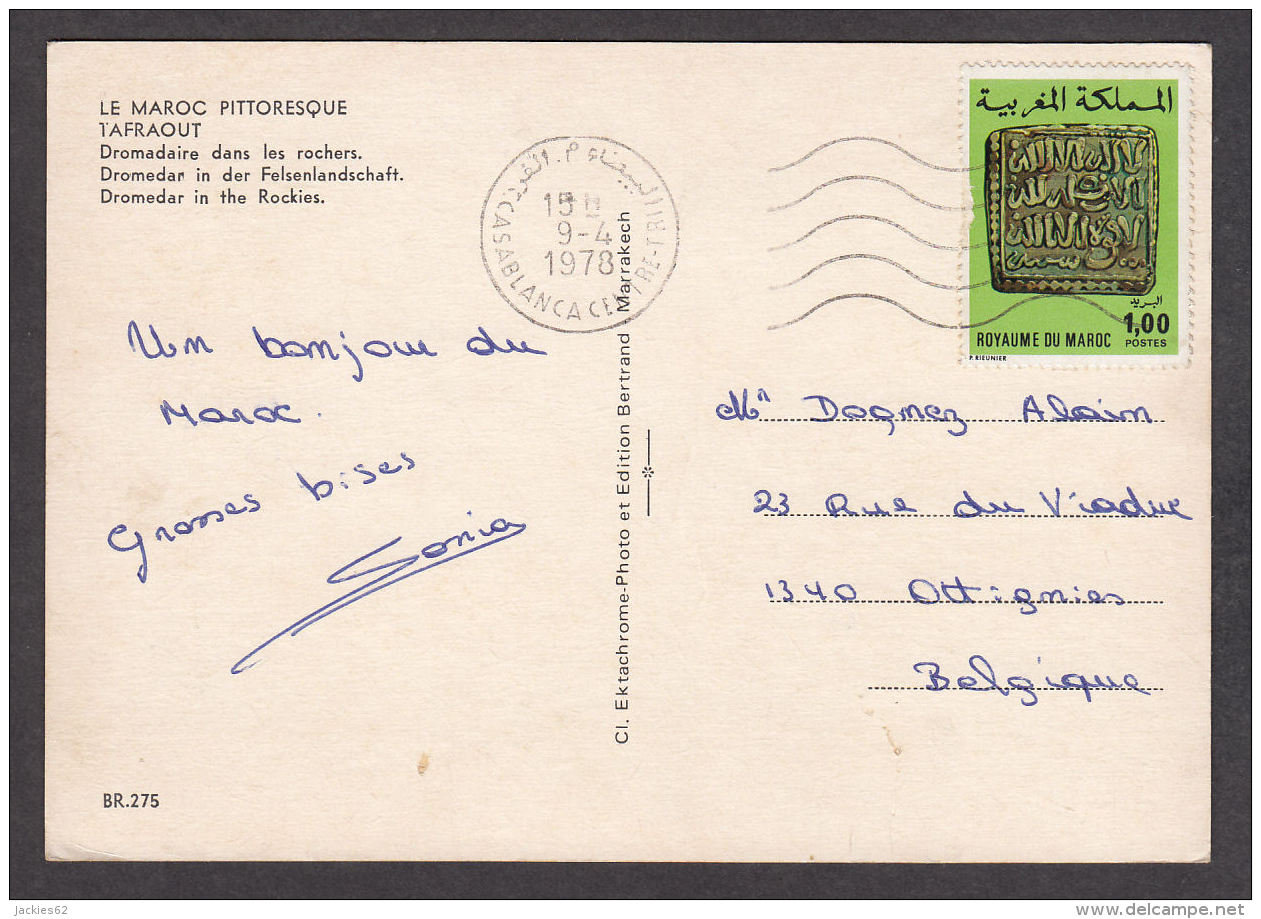 LE MAROC PITTORESQUE
TAFRAOUT
Dromadaire dans les rochers.
Dromedar in der Felsenlandschaft.
Dromedar in the Rockies.
Un bonjour du
Maroc.
Grosses bises
Sonia
BR.275
CASABLANCA CENTRE-TRI
9-4
1978
Cl. Ektachrome-Photo et Edition Bertrand Marrakech
المملكة المغربية
البريد
1,00
ROYAUME DU MAROC POSTES
P. RIEUNIER
Mr Dogmez Alain
23 Rue du Viaduc
1340 Ottignies
Belgique
jackies62
delcampe.net